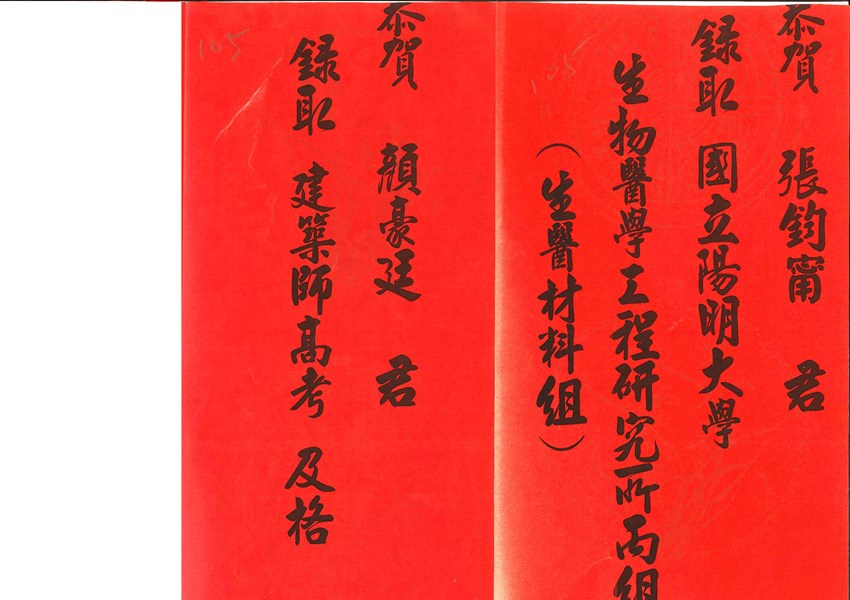 恭賀 張鈞甯 君
錄取 國立陽明大學
生物醫學工程研究所丙組
(生醫材料組)
105
恭賀 顏豪廷 君
錄取 建築師高考 及格
105